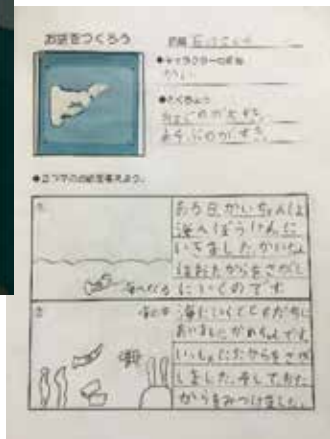 お話をつくろう
●キャラクターの名前
かい
●とくちょう
のが大すき。
あそぶのがすき。
●2つ字のお話を考えよう。
①
ある日、かいちゃんは
海へぼうけんに
いきました。かいちゃん
はおたからをさがし
にいくのです
海へもぐる
②
海の中
海にいくとともだちに
あいました。かめちゃんです。
いっしょにたからをさが
しました。そして、おた
からをみつけました。